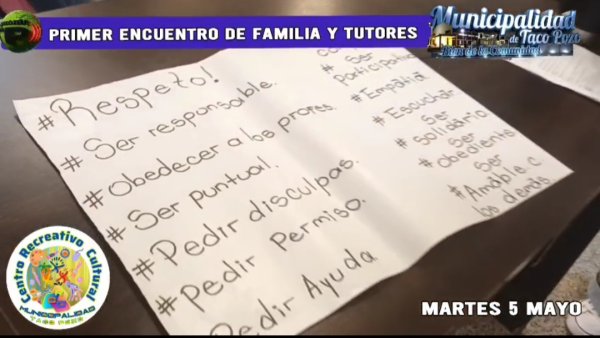 PRIMER ENCUENTRO DE FAMILIA Y TUTORES
Municipalidad
de Taco Pozo
#Respeto!
#Ser responsable.
#Obedecer a los profes.
#Ser puntual.
#Pedir disculpas.
#Pedir Permiso.
Pedir Ayuda
# Ser
participativo
#Empatía
#Escuchar
Ser
#solidario
Ser
#obediente
Ser
#Amable c
los demás
Centro Recreativo Cultural
MUNICIPALIDAD
TACO POZO
MARTES 5 MAYO